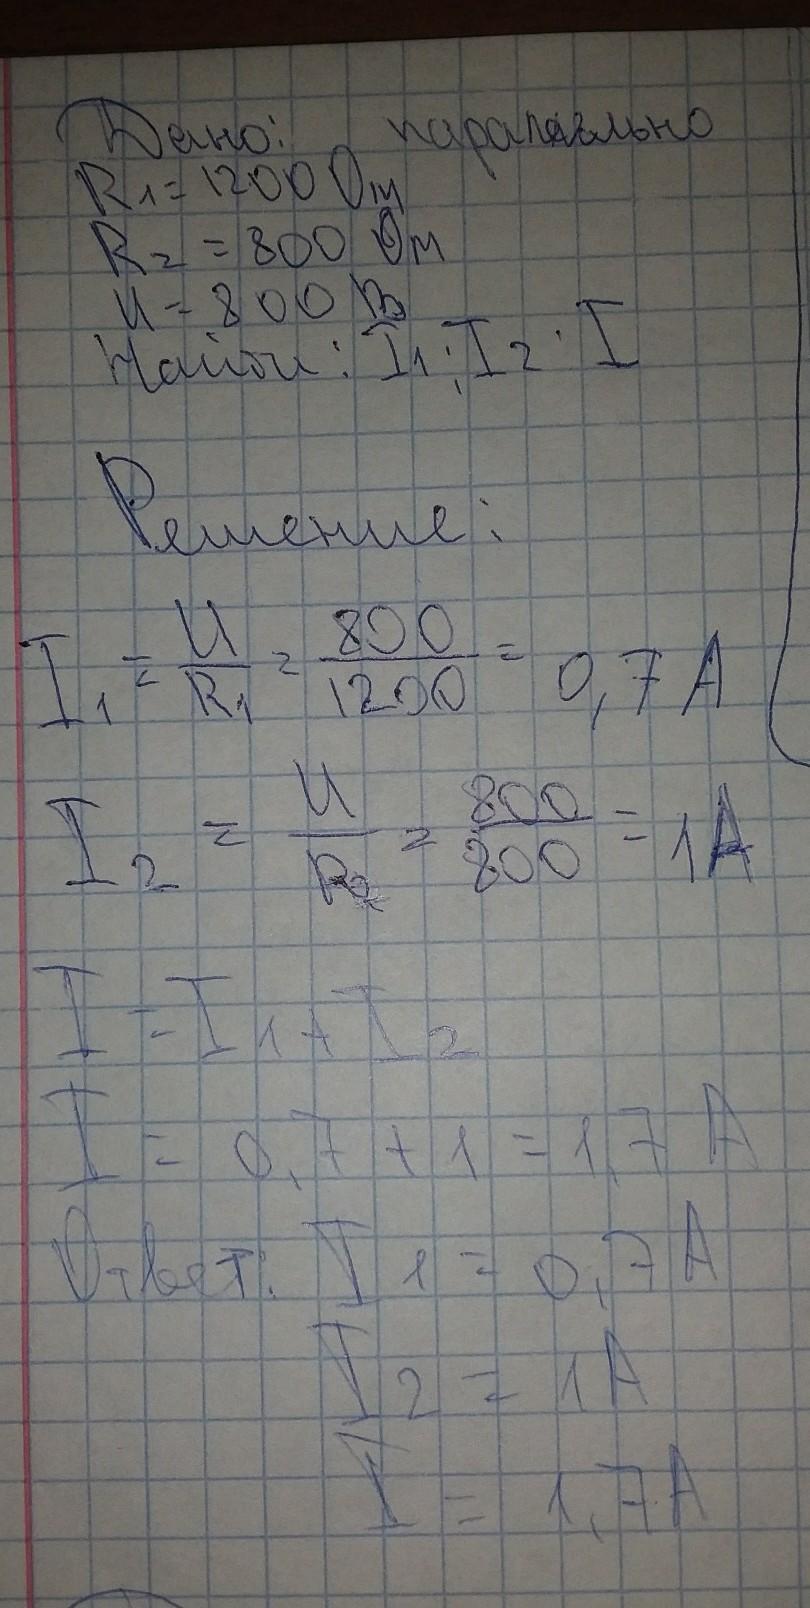 Дано: паралельно
R1 = 1200 Ом
R2 = 800 Ом
U = 800 В
Найти: I1; I2; I
Решение:
I1 = U/R1 = 800/1200 = 0,7 А
I2 = U/R2 = 800/800 = 1А
I = I1 + I2
I = 0,7 + 1 = 1,7 А
Ответ: I1 = 0,7А
I2 = 1А
I = 1,7А